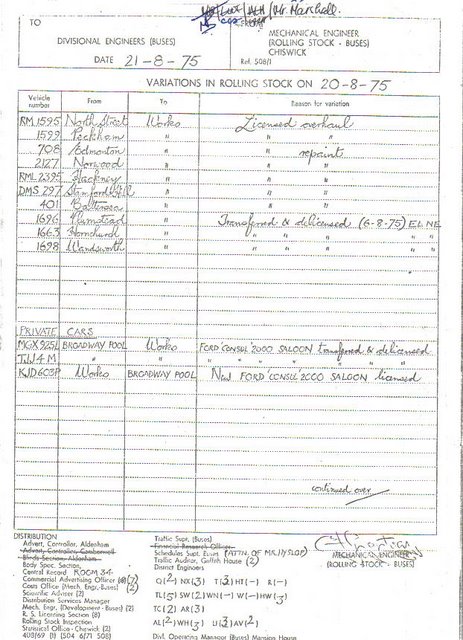 Mr. Marshall.
TO
FROM
DIVISIONAL ENGINEERS (BUSES)
MECHANICAL ENGINEER
(ROLLING STOCK - BUSES)
CHISWICK
DATE 21-8-75
Ref. 508/1
VARIATIONS IN ROLLING STOCK ON 20-8-75
Vehicle number From To Reason for variation
RM 1595 North Street Works Licensed overhaul
1599 Peckham " " "
708 Edmonton " " repaint
2127 Norwood " " "
RML 2395 Hackney " " "
DMS 297 Stamford Hill " " "
401 Battersea " " "
1696 Plumstead " Transferred & delicensed (6-8-75) EL NE
1663 Hornchurch " " " " "
1698 Wandsworth " " " " "
PRIVATE CARS
MGX 925L BROADWAY POOL Works FORD 'CONSUL' 2000 SALOON transferred & delicensed
" " " " " " "
KJD 603P Works BROADWAY POOL New FORD 'CONSUL' 2000 SALOON licensed
continued over
DISTRIBUTION
Advert. Controller, Aldenham
Advert. Controller, Camberwell
Body Spec. Section,
Central Record ROOM 34
Commercial Advertising Officer
Cars Office (Mech. Engr.-Buses) (2)
Scientific Adviser (2)
Distribution Services Manager
Mech. Engr. (Development-Buses) (2)
R. S. Licensing Section (8)
Rolling Stock Inspection
Statistical Office-Chiswick (2)
Traffic Supt. (Buses)
Financial Research Officer
Schedules Supt. Buses (ATTN. OF MR. HYSLOP)
Traffic Auditor, Griffith House (2)
District Engineers
Q(2) NX(3) T(3) HT(-) R(-)
TL(5) SW(2) WN(-) W(-) HW(3)
TC(2) AR(3)
AL(2) WH(3) U(3) AV(2)
Divl. Operating Manager (Buses) Mansion House
MECHANICAL ENGINEER
(ROLLING STOCK - BUSES)